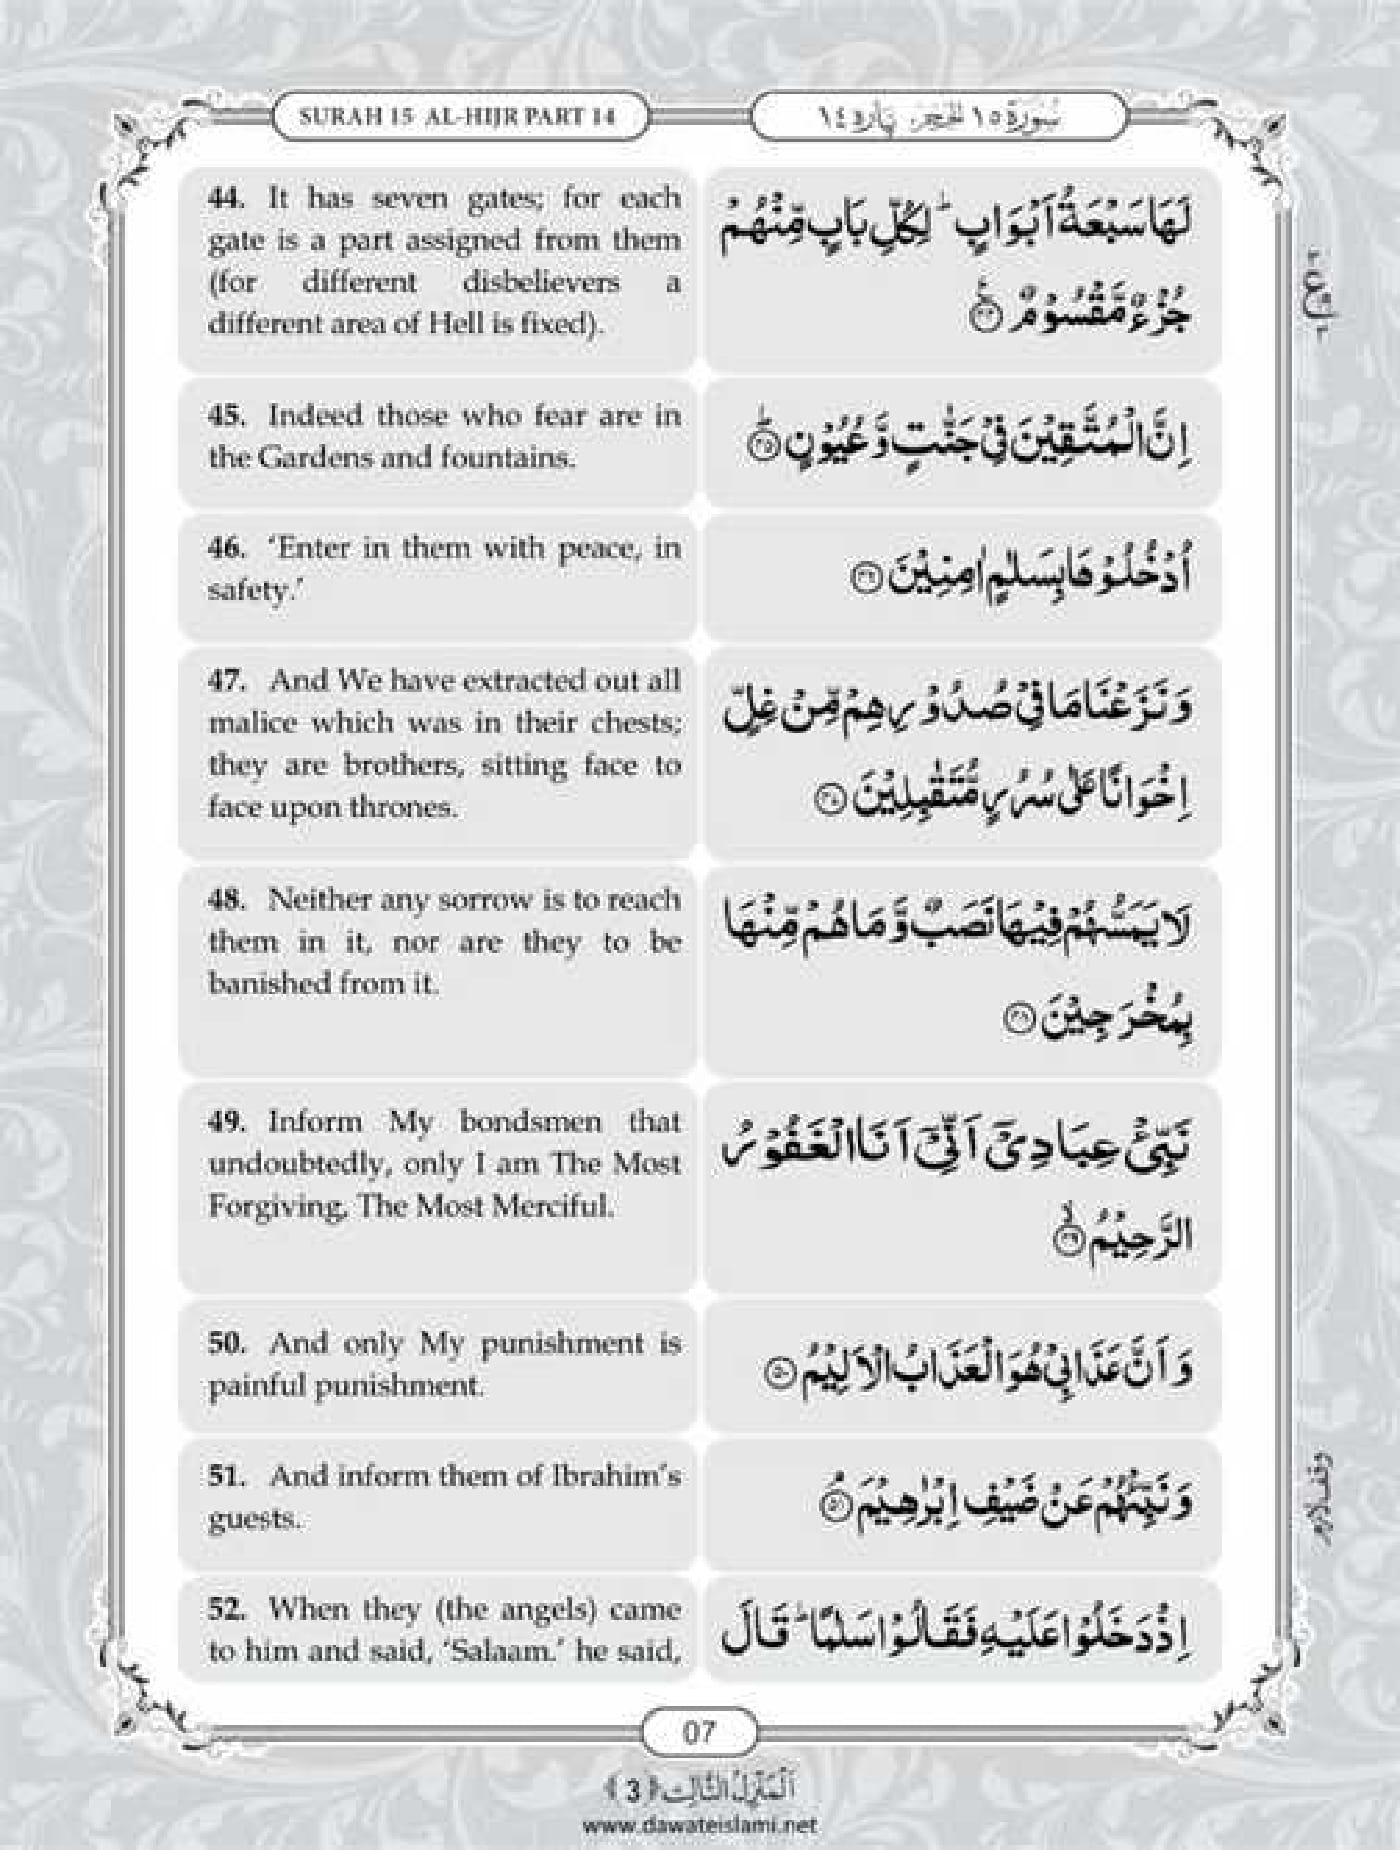 SURAH 15 AL-HIJR PART 14
سُوْرَةُ ١٥ الْحِجْر، پَارَه ١٤
44. It has seven gates; for each
gate is a part assigned from them
(for different disbelievers a
different area of Hell is fixed).
لَهَا سَبْعَةُ اَبْوَابٍ ؕ لِكُلِّ بَابٍ مِّنْهُمْ
جُزْءٌ مَّقْسُوْمٌ ﴿۴۴﴾
45. Indeed those who fear are in
the Gardens and fountains.
اِنَّ الْمُتَّقِيْنَ فِيْ جَنّٰتٍ وَّ عُيُوْنٍ ﴿۴۵﴾ؕ
46. ‘Enter in them with peace, in
safety.’
اُدْخُلُوْهَا بِسَلٰمٍ اٰمِنِيْنَ ﴿۴۶﴾
47. And We have extracted out all
malice which was in their chests;
they are brothers, sitting face to
face upon thrones.
وَ نَزَعْنَا مَا فِيْ صُدُوْرِهِمْ مِّنْ غِلٍّ
اِخْوَانًا عَلٰى سُرُرٍ مُّتَقٰبِلِيْنَ ﴿۴۷﴾
48. Neither any sorrow is to reach
them in it, nor are they to be
banished from it.
لَا يَمَسُّهُمْ فِيْهَا نَصَبٌ وَّ مَا هُمْ مِّنْهَا
بِمُخْرَجِيْنَ ﴿۴۸﴾
49. Inform My bondsmen that
undoubtedly, only I am The Most
Forgiving, The Most Merciful.
نَبِّئْ عِبَادِيْۤ اَنِّيْۤ اَنَا الْغَفُوْرُ
الرَّحِيْمُ ﴿۴۹﴾ۙ
50. And only My punishment is
painful punishment.
وَ اَنَّ عَذَابِيْ هُوَ الْعَذَابُ الْاَلِيْمُ ﴿۵۰﴾
51. And inform them of Ibrahim’s
guests.
وَ نَبِّئْهُمْ عَنْ ضَيْفِ اِبْرٰهِيْمَ ﴿۵۱﴾ۘ
52. When they (the angels) came
to him and said, ‘Salaam.’ he said,
اِذْ دَخَلُوْا عَلَيْهِ فَقَالُوْا سَلٰمًا ؕ قَالَ
وقف لازم
07
اَلْمَنْزِلُ الثَّالِث ﴿3﴾
www.dawateislami.net